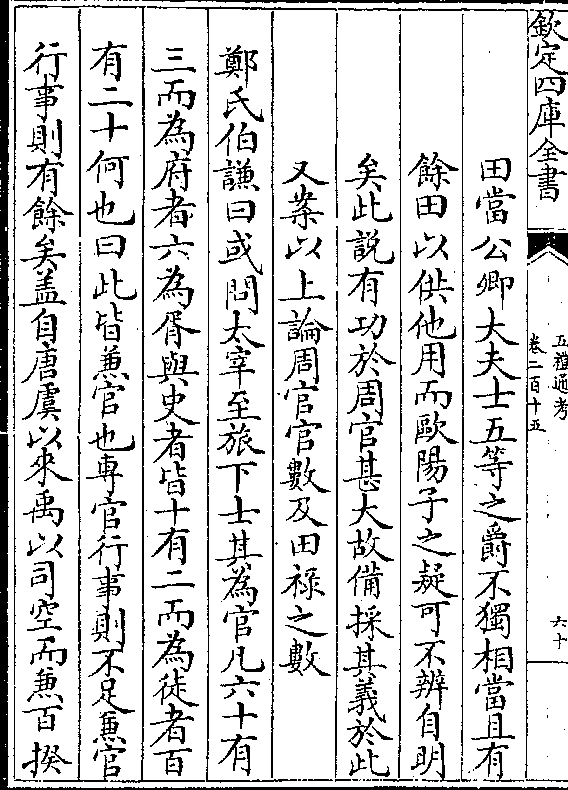 欽定四庫全書
五禮通考
卷二百十五
六十
田當公卿大夫士五等之爵不獨相當且有
餘田以供他用而歐陽子之疑可不辨自明
矣此說有功於周官甚大故備採其義於此
又案以上論周官官數及田祿之數
鄭氏伯謙曰或問太宰至旅下士其為官凡六十有
三而為府者六為胥與史者皆十有二而為徒者百
有二十何也曰此皆兼官也專官行事則不足兼官
行事則有餘矣盖自唐虞以來禹以司空而兼百揆